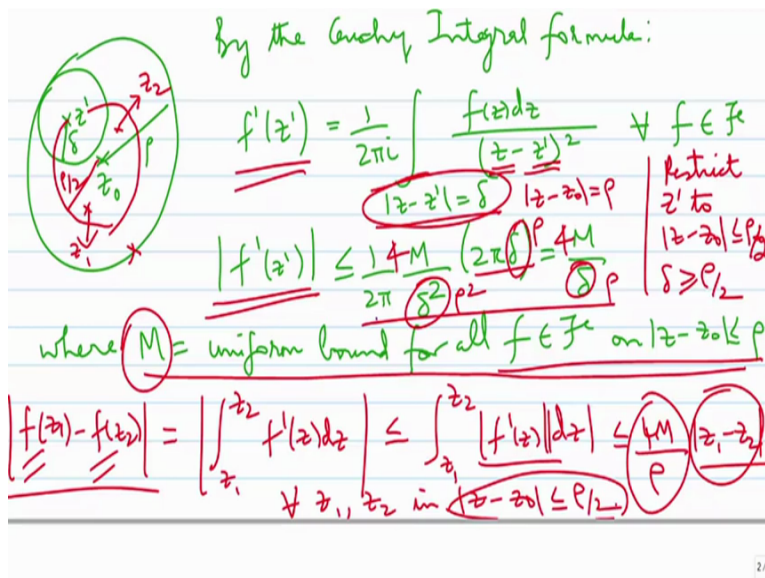 By the Cauchy Integral formula:
f'(z') = 1/2πi ∫ f(z)dz/(z-z')² ∀ f ∈ ℱ
|z-z'|=δ |z-z₀|=ρ
Restrict
z' to
|z-z₀|≤ρ/2
δ≥ρ/2
|f'(z')| ≤ 1/2π 4M/δ² ρ² (2πδ) ρ = 4M/δ ρ
where M = uniform bound for all f ∈ ℱ on |z-z₀|≤ρ
|f(z₁)-f(z₂)| = |∫_{z₁}^{z₂} f'(z)dz| ≤ ∫_{z₁}^{z₂} |f'(z)||dz| ≤ 4M/ρ |z₁-z₂|
∀ z₁, z₂ in |z-z₀|≤ρ/2
z₂
z'
δ
ρ
ρ/2
z₀
z₁
2/